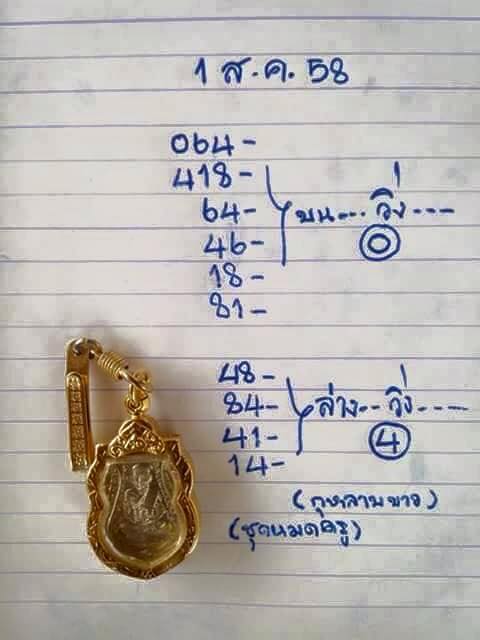 1 ส.ค. 58
064-
418-
64- บน--- วิ่ง ---
46- 0
18-
81-
48-
84- ล่าง-- วิ่ง ----
41- 4
14-
(กุหลาบขาว)
(ชุดหมดครู)